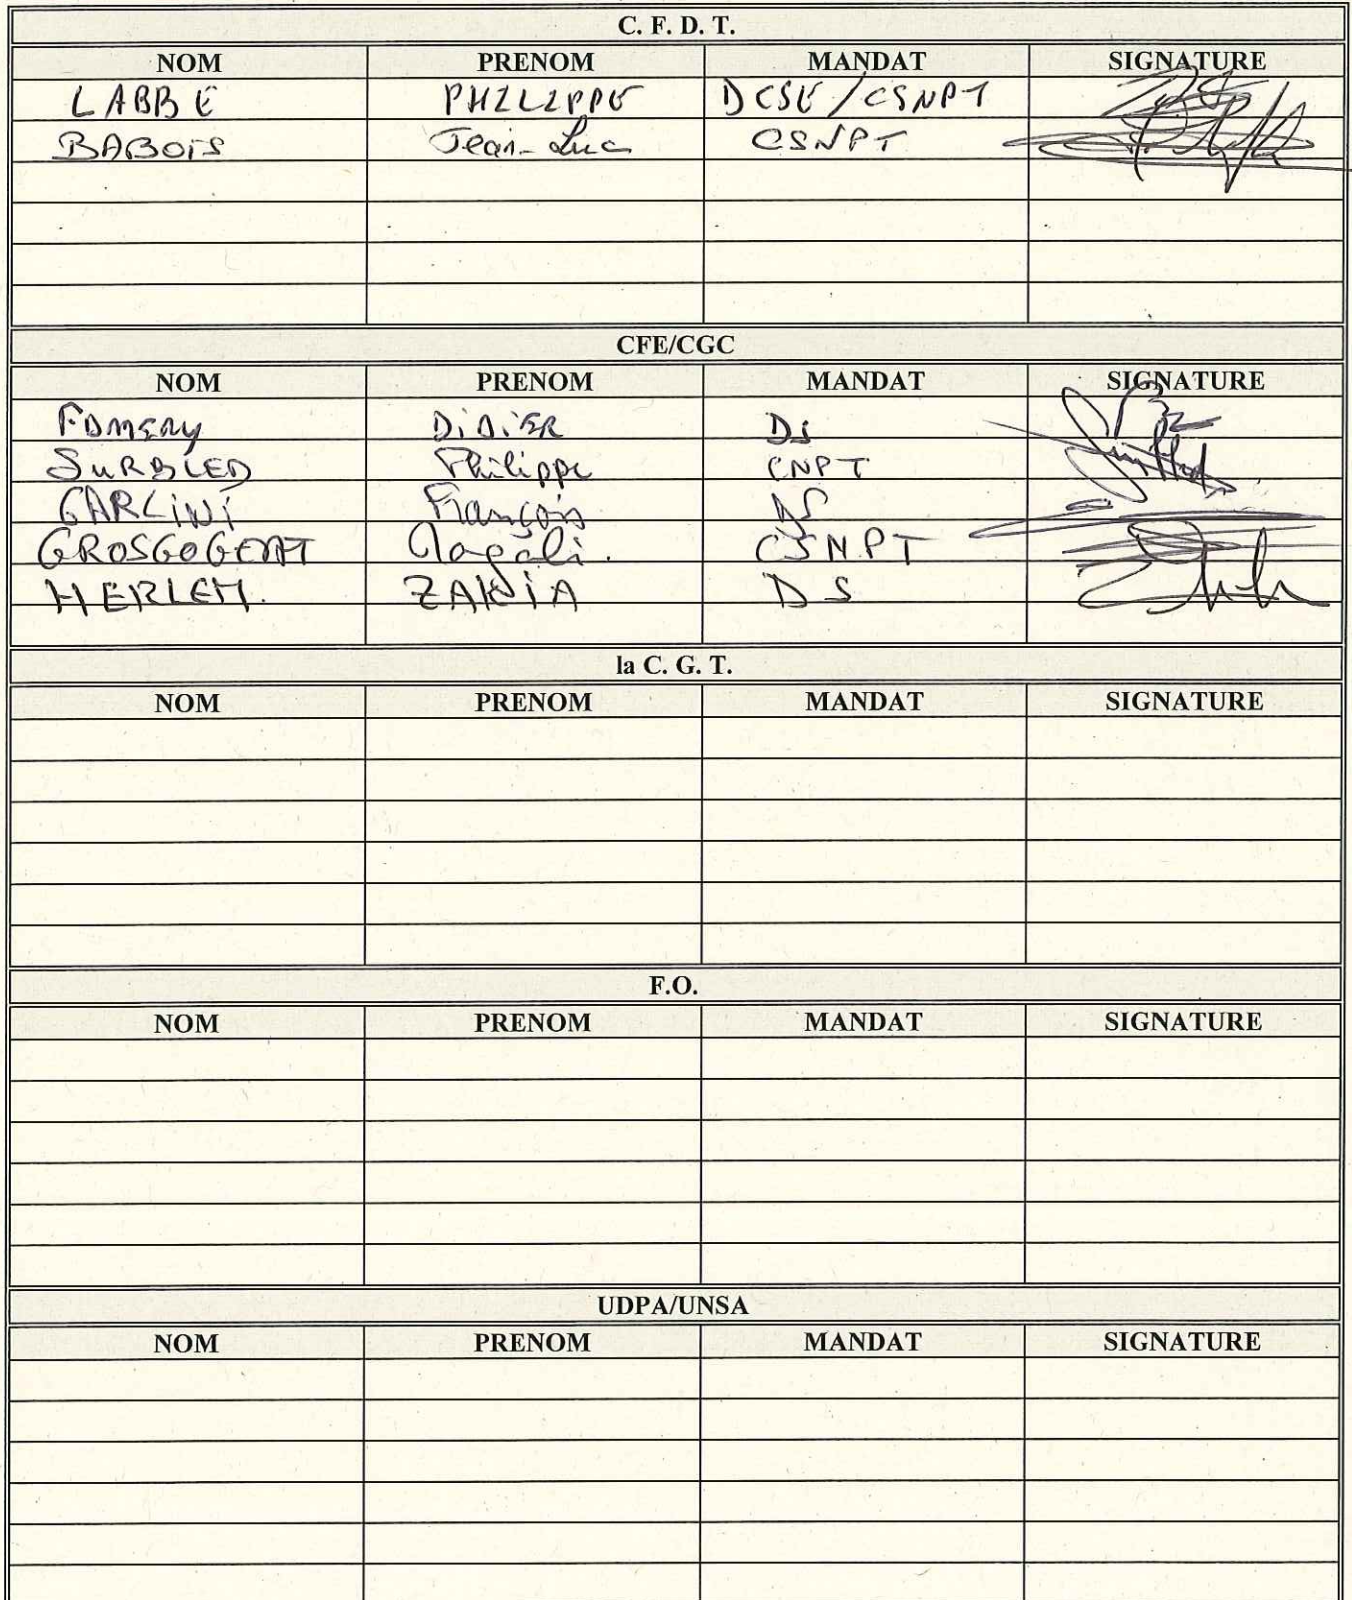 C. F. D. T.
NOM PRENOM MANDAT SIGNATURE
LABBE PHILIPPE DCSE/CSNPT
BABOIS Jean-Luc CSNPT
CFE/CGC
NOM PRENOM MANDAT SIGNATURE
DiDiER DS
SURBLED Philippe CNPT
GARLiNi François DS
GROSGOGEAT Magali. CSNPT
HERLEM. ZAKiA DS
la C. G. T.
NOM PRENOM MANDAT SIGNATURE
F.O.
NOM PRENOM MANDAT SIGNATURE
UDPA/UNSA
NOM PRENOM MANDAT SIGNATURE